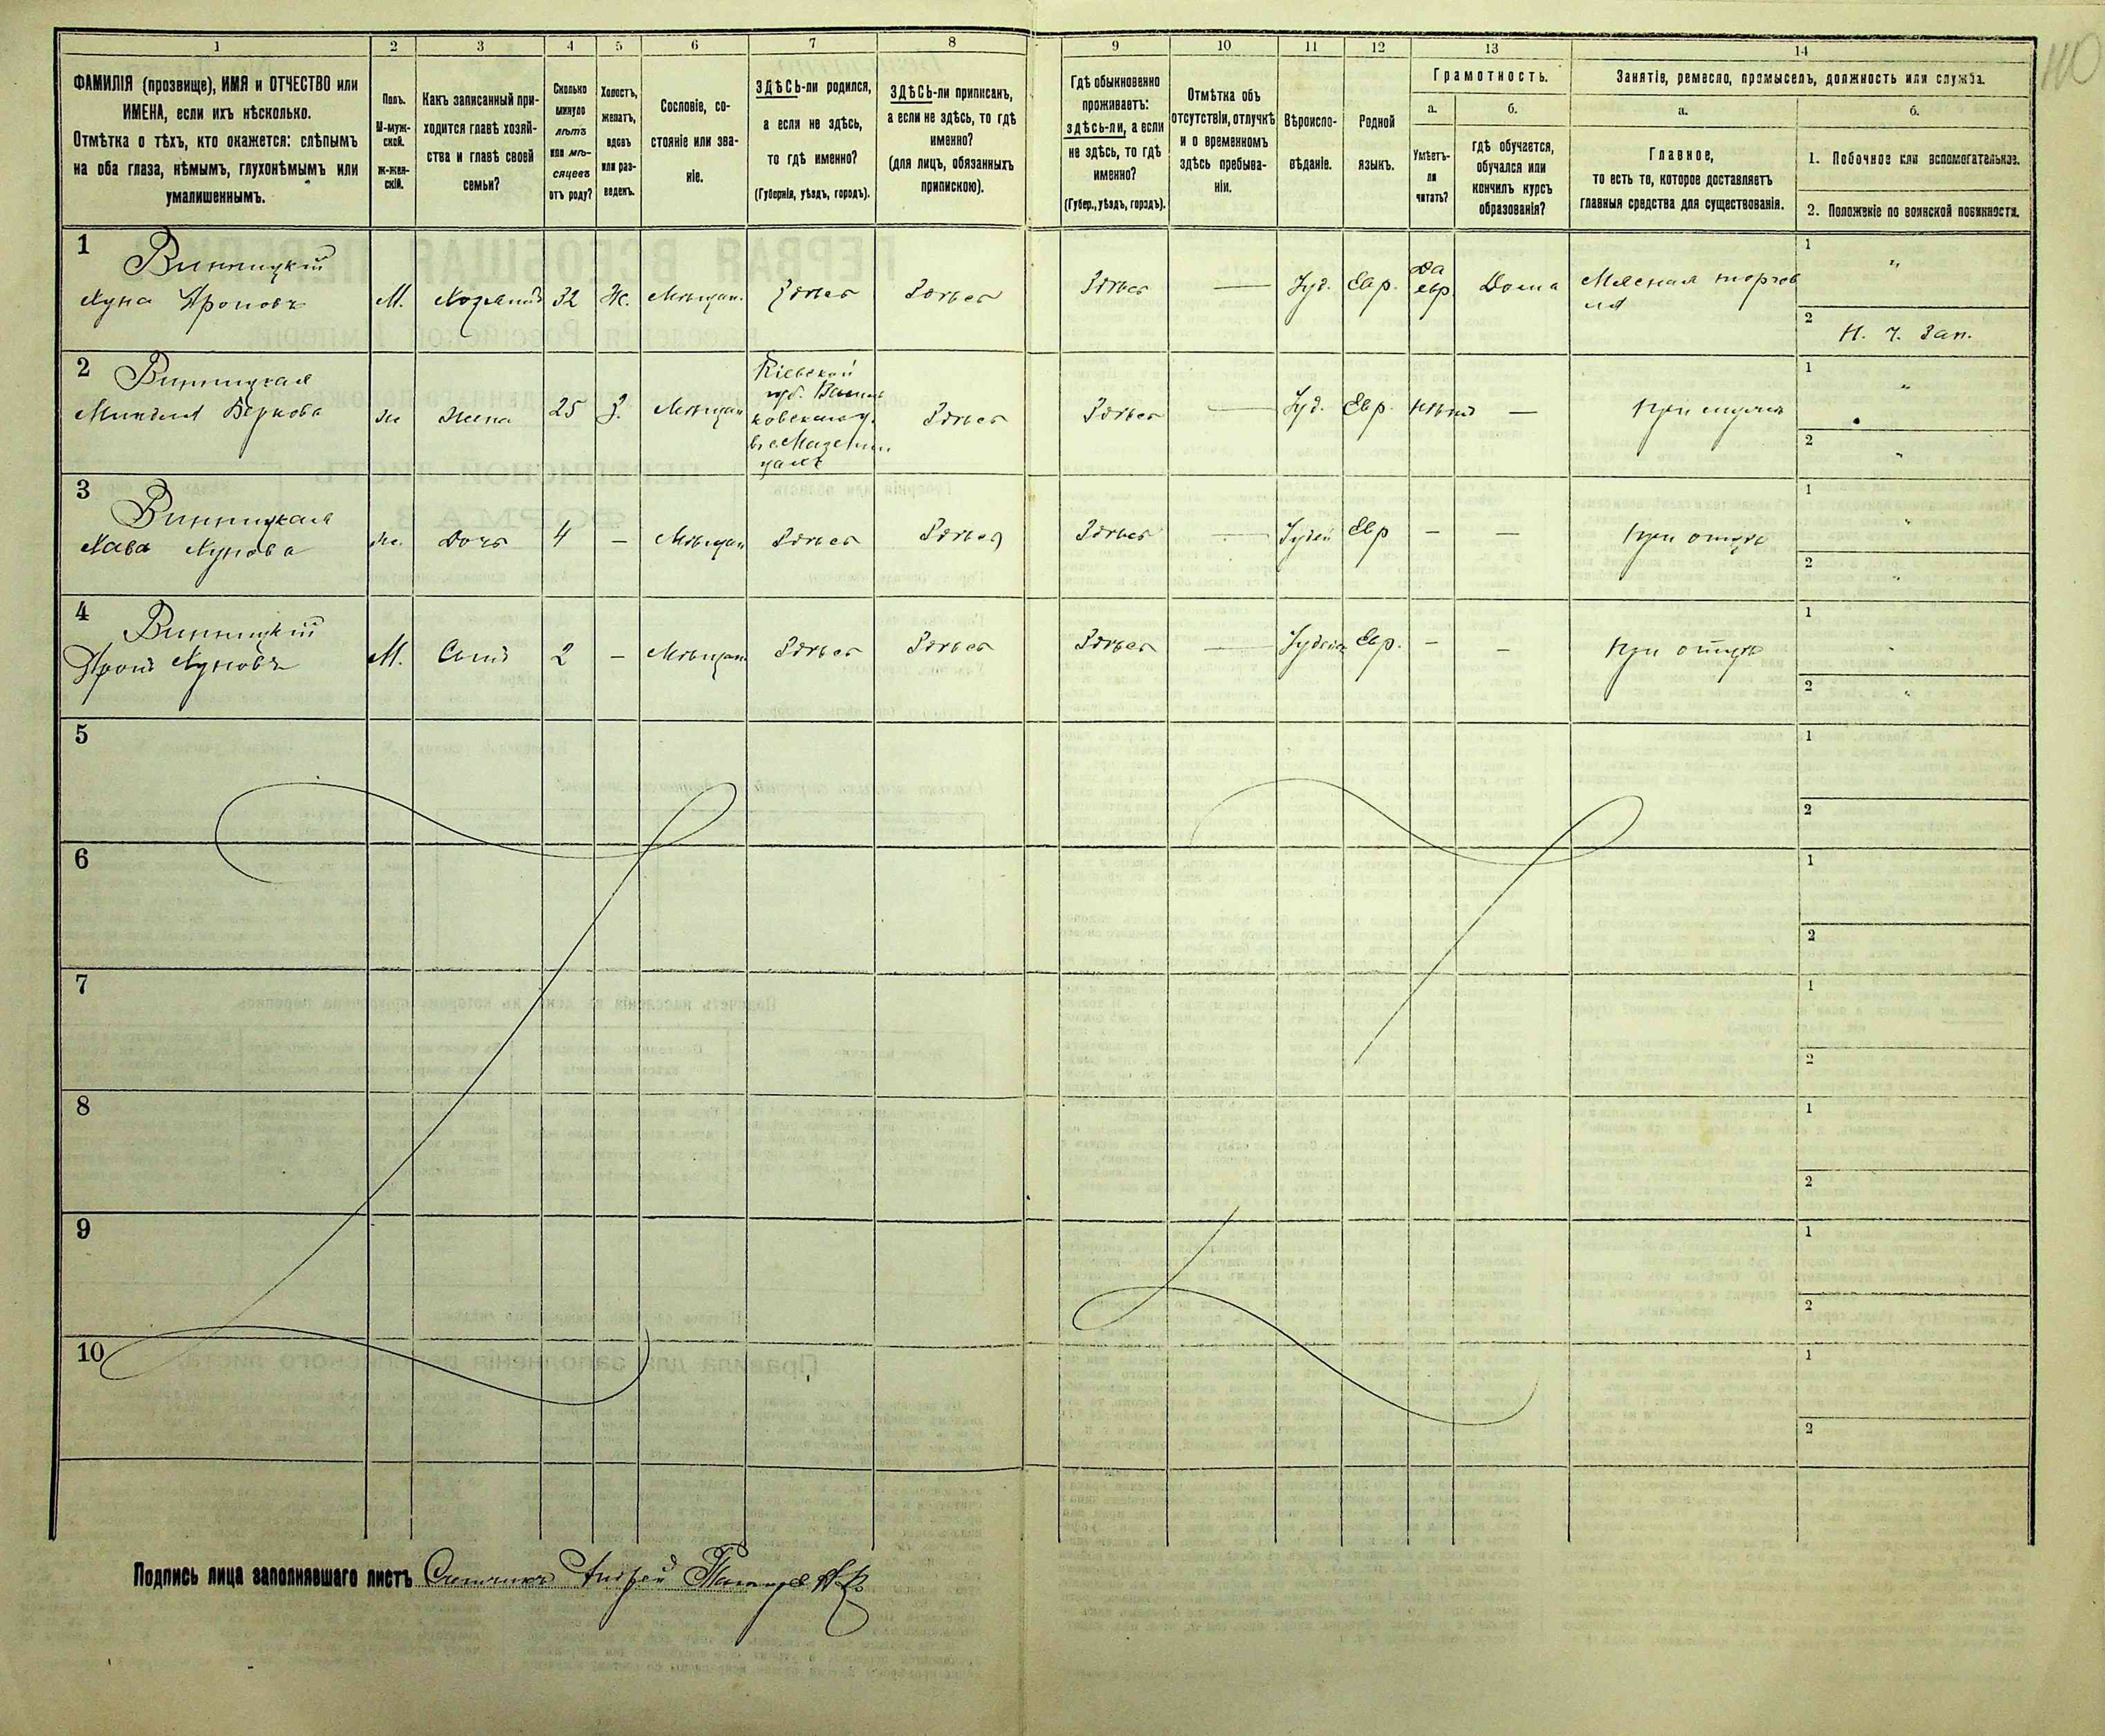 1 2 3 4 5 6 7 8 9 10 11 12 13 14
110
ФАМИЛІЯ (прозвище), ИМЯ и ОТЧЕСТВО или
ИМЕНА, если ихъ нѣсколько.
Отмѣтка о тѣхъ, кто окажется: слѣпымъ
на оба глаза, нѣмымъ, глухонѣмымъ или
умалишеннымъ.
Полъ.
М-муж-
ской.
ж-жен-
скій.
Какъ записанный при-
ходится главѣ хозяй-
ства и главѣ своей
семьи?
Сколько
минуло
лѣтъ
или мѣ-
сяцевъ
отъ роду?
Холостъ,
женатъ,
вдовъ
или раз-
веденъ.
Сословіе, со-
стояніе или зва-
ніе.
ЗДѢСЬ-ли родился,
а если не здѣсь,
то гдѣ именно?
(Губернія, уѣздъ, городъ).
ЗДѢСЬ-ли приписанъ,
а если не здѣсь, то гдѣ
именно?
(для лицъ, обязанныхъ
припискою).
Гдѣ обыкновенно
проживаетъ:
здѣсь-ли, а если
не здѣсь, то гдѣ
именно?
(Губер., уѣздъ, городъ).
Отмѣтка объ
отсутствіи, отлучкѣ
и о временномъ
здѣсь пребыва-
ніи.
Вѣроиспо-
вѣданіе.
Родной
языкъ.
Грамотность.
а.
Умѣетъ-
ли
читать?
б.
гдѣ обучается,
обучался или
кончилъ курсъ
образованія?
Занятіе, ремесло, промыселъ, должность или служба.
а.
Главное,
то есть то, которое доставляетъ
главныя средства для существованія.
б.
1. Побочное или вспомогательное.
2. Положеніе по воинской повинности.
1
Винницкій
Хуна Ароновъ
М. Хозяинъ 32 Ж. Мѣщан. Здѣсь Здѣсь
Здѣсь — Іуд. Евр. Да евр. Дома Мясная торгов
ля
1 "
2 Н. Ч. Зап.
2
Винницкая
Миндля Беркова
ж Жена 25 З. Мѣщан
Кіевской
губ. Василь
ковскаго у.
Здѣсь
Здѣсь — Іуд. Евр. Нѣтъ — При мужѣ
1 "
2 "
3
Винницкая
Хава Хунова
ж. Дочь 4 — Мѣщан Здѣсь Здѣсь
Здѣсь — Іудей Евр — — При отцѣ
1 "
2 "
4
Винницкій
Аронъ Хуновъ
М. Сынъ 2 — Мѣщан Здѣсь Здѣсь
Здѣсь — Іудейск Евр. — — При отцѣ
1 "
2 "
5
1
2
6
1
2
7
1
2
8
1
2
9
1
2
10
1
2
Подпись лица заполнявшаго листъ Счетчикъ Андрей